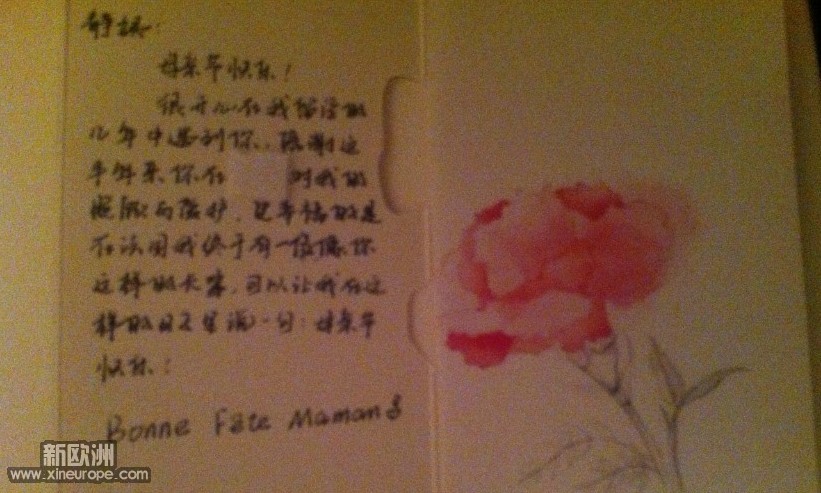 静姨：
母亲节快乐！
很开心在我留法的
几年中遇到你，感谢这
半年来你在 对我的
照顾和爱护，更幸福的是
在法国我终于有一位像你
这样的长辈，可以让我在这
样的日子里说一句：母亲节
快乐！
Bonne Fête Maman
新欧洲
www.xineurope.com